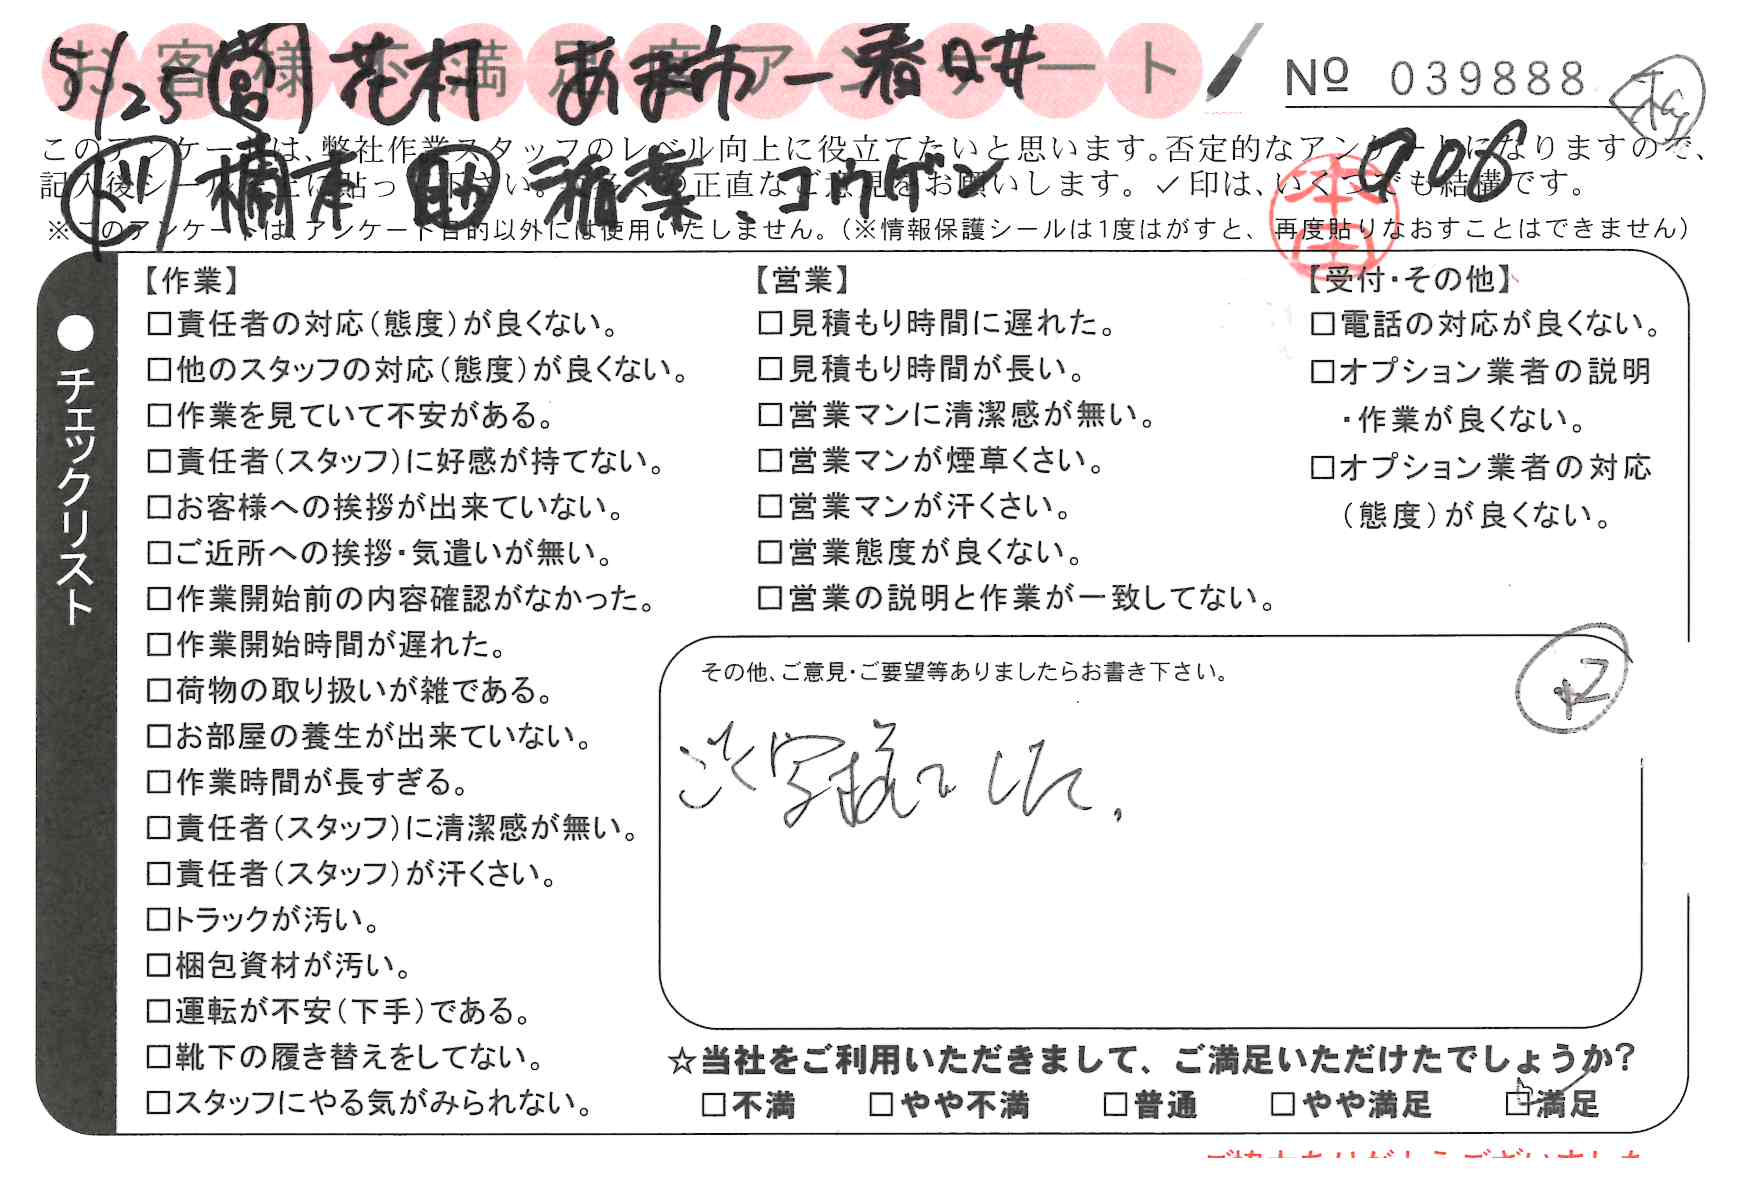 お客様不満足度アンケート
5/25 営 花村 あま市ー春日井
№ 039888
このアンケートは、弊社作業スタッフのレベル向上に役立てたいと思います。否定的なアンケートになりますので、
ドリ 橋本 助 稲葉、コウゲン
906
本田
記入後シールを上に貼って下さい。多くの正直なご意見をお願いします。✓印は、いくつでも結構です。
※このアンケートは、アンケート目的以外には使用いたしません。(※情報保護シールは1度はがすと、再度貼りなおすことはできません)
●チェックリスト
【作業】
□責任者の対応(態度)が良くない。
□他のスタッフの対応(態度)が良くない。
□作業を見ていて不安がある。
□責任者(スタッフ)に好感が持てない。
□お客様への挨拶が出来ていない。
□ご近所への挨拶・気遣いが無い。
□作業開始前の内容確認がなかった。
□作業開始時間が遅れた。
□荷物の取り扱いが雑である。
□お部屋の養生が出来ていない。
□作業時間が長すぎる。
□責任者(スタッフ)に清潔感が無い。
□責任者(スタッフ)が汗くさい。
□トラックが汚い。
□梱包資材が汚い。
□運転が不安(下手)である。
□靴下の履き替えをしてない。
□スタッフにやる気がみられない。
【営業】
□見積もり時間に遅れた。
□見積もり時間が長い。
□営業マンに清潔感が無い。
□営業マンが煙草くさい。
□営業マンが汗くさい。
□営業態度が良くない。
□営業の説明と作業が一致してない。
【受付・その他】
□電話の対応が良くない。
□オプション業者の説明
・作業が良くない。
□オプション業者の対応
(態度)が良くない。
その他、ご意見・ご要望等ありましたらお書き下さい。
ご苦労様でした。
☆当社をご利用いただきまして、ご満足いただけたでしょうか?
□不満 □やや不満 □普通 □やや満足 ☑満足
ご協力ありがとうございました